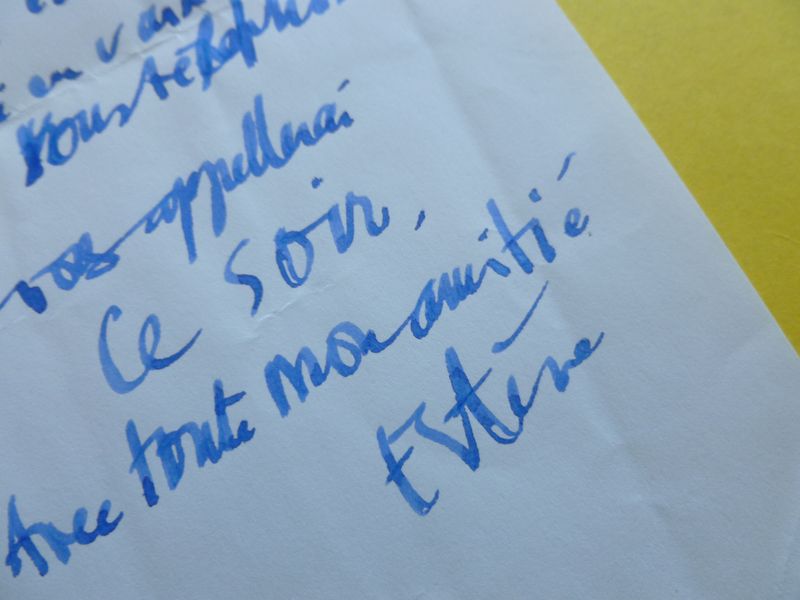 en v
vous télépho
vous appellerai
ce soir,
Avec toute mon amitié
Estève